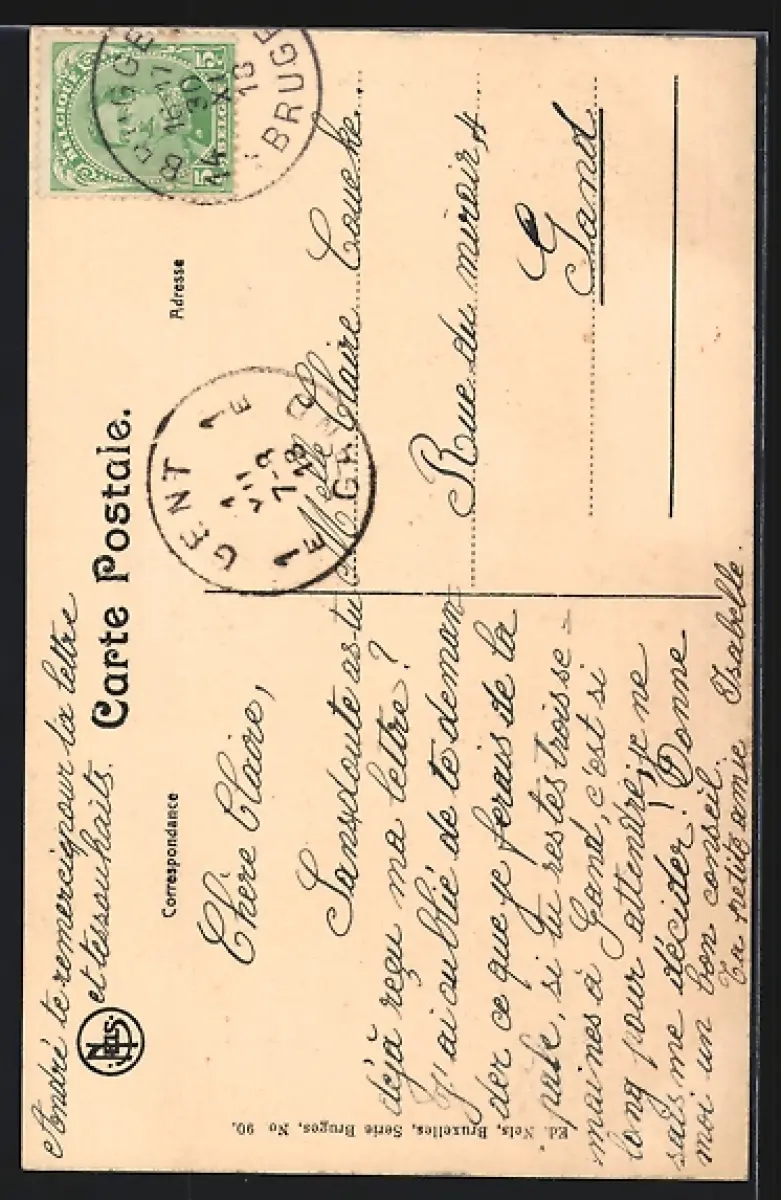 André te remercie pour ta lettre
et tes souhaits.
Carte Postale.
Correspondance
Adresse
Chère Claire,
Sans doute as-tu
déjà reçu ma lettre?
J'ai oublié de te deman
der ce que je ferais de ta
, si tu restes trois se=
maines à Gand, c'est si
long pour attendre, je ne
sais me décider! Donne
moi un bon conseil.
Ta petite amie Isabelle.
Melle Claire
Rue du miroir, 4
Gand
Ed. Nels, Bruxelles, Serie Bruges, No 90.
Nels
BELGIQUE
5
5
BRUGGE
16-17
30
XI
BRUGES
GENT 1
E
1
7-8
18
1
E
GAND